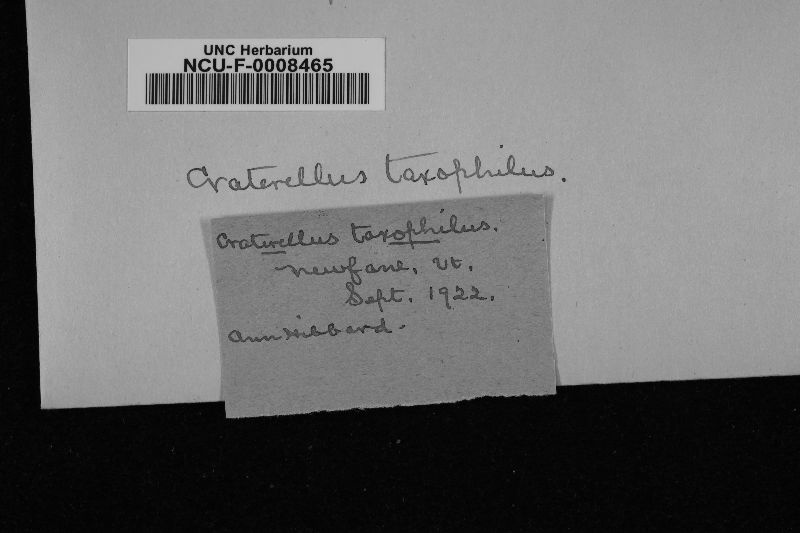 UNC Herbarium
NCU-F-0008465
Craterellus taxophilus.
Craterellus taxophilus.
Newfane, Vt.
Sept. 1922.
Ann Hibbard.